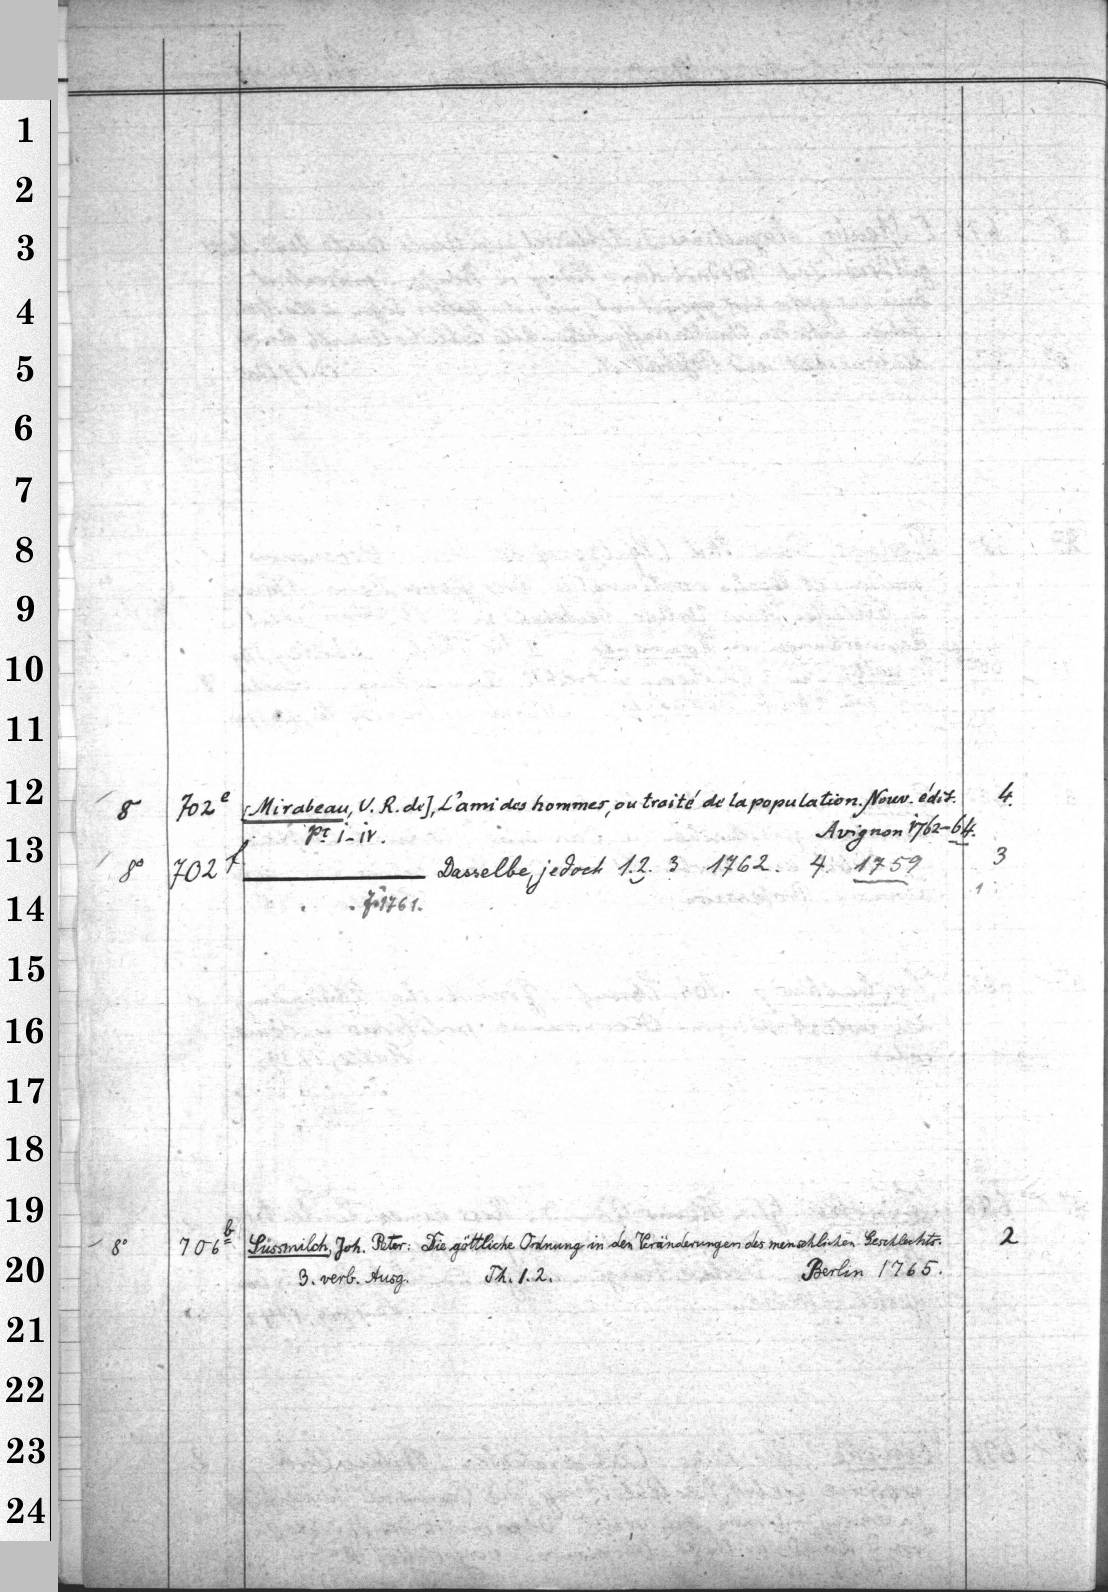 1
2
3
4
5
6
7
8
9
10
11
12
13
14
15
16
17
18
19
20
21
22
23
24
8° 702 e [Mirabeau, V. R. de], L'ami des hommes, ou traité de la population. Nouv. édit. 4.
pt. i-iv. Avignon 1762-64.
8° 702 f Dasselbe, jedoch 1.2. 3 1762. 4. 1759 3
1761.
8° 706 b Süssmilch, Joh. Peter: Die göttliche Ordnung in den Veränderungen des menschlichen Geschlechts. 2
3. verb. Ausg. Th. 1. 2. Berlin 1765.